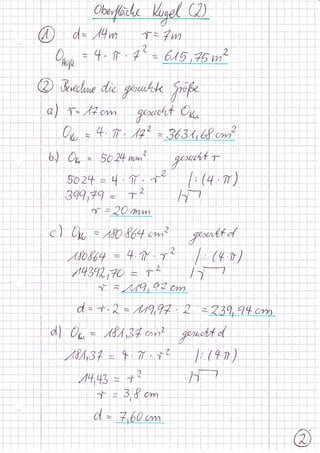 Oberfläche Kugel (2)
① d = 14m r = 7m
O = 4 · π · 7² = 615,75 m²
② Berechne die gesuchte Größe
a) r = 17cm gesucht OKu
OKu = 4 · π · 17² = 3631,68 cm²
b) OKu = 5024 mm² gesucht r
5024 = 4 · π · r² |: (4 · π)
399,79 = r² |√
r = 20 mm
c) OKu = 180864 cm² gesucht d
180864 = 4 · π · r² |: (4·π)
14392,70 = r² |√
r = 119,97 cm
d = r · 2 = 119,97 · 2 = 239,94 cm
d) OKu = 181,37 cm² gesucht d
181,37 = 4 · π · r² |: (4π)
14,43 = r² |√
r = 3,8 cm
d = 7,60 cm
②